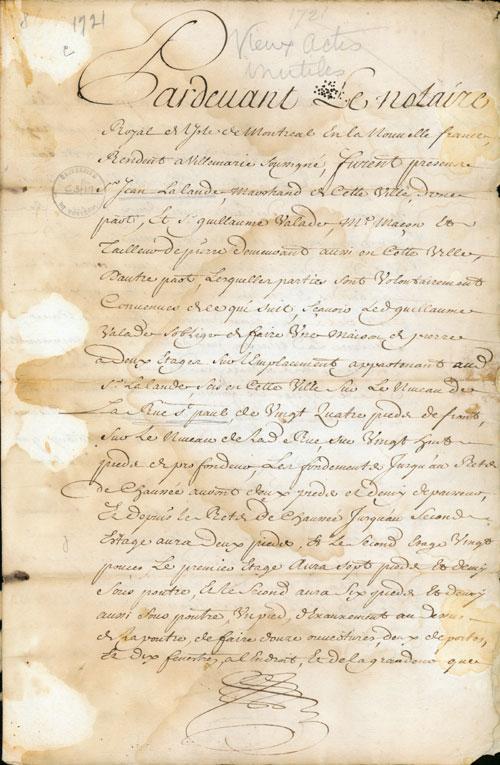 1721
1721
Vieux Actes
inutiles
Pardevant Le notaire
Royal de l'Isle de Montreal En la Nouvelle france,
Residant a Villemarie Soussigné, furent presens
Sr. Jean Lalande, Marchand de Cette Ville, d'une
part, Et Sr. guillaume Valade, Me. Maçon Et
Tailleur de pierre demeurant aussi en Cette Ville,
D'autre part Lesquelles parties sont Volontairement
Convenues de ce qui suit, Sçavoir Led. guillaume
Valade s'oblige de faire Une Maison de pierre
a deux Etages Sur l'Emplacement appartenant aud.
Sr. Lalande, Sis en Cette Ville Sur Le Niveau de
La Rue St. paul, de Vingt Quatre pieds de front,
Sur Le Niveau de Lad. Rue Sur Vingt huit
pieds de profondeur, Les fondements Jusqu'au Retz
de Chaussée auront deux pieds et demy d'epaisseur,
Et depuis le Retz de Chaussée Jusqu'au Second
Estage aura deux pieds, Et Le Second Etage Vingt
pouces Le premier Etage Aura Sept pieds Et demy
Sous poutre, Et le Second aura Six pieds Et demy
aussi sous poutre, Un pied d'Exaucement au dessus
de la poutre, de faire douze ouvertures, deux de portes,
Et Dix fenestres, a l'Endroit, Et de la grandeur que